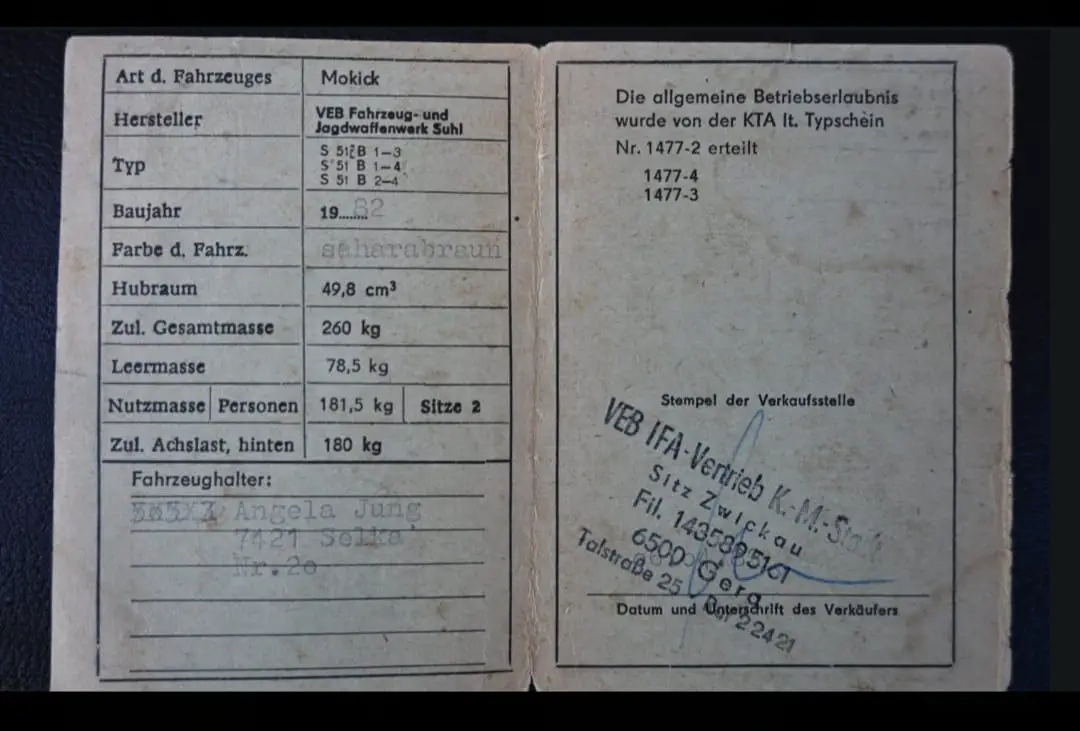 Art d. Fahrzeuges Mokick
Hersteller VEB Fahrzeug- und
Jagdwaffenwerk Suhl
Typ S 51 B 1—3
S 51 B 1—4
S 51 B 2—4
Baujahr 19......82
Farbe d. Fahrz. saharabraun
Hubraum 49,8 cm³
Zul. Gesamtmasse 260 kg
Leermasse 78,5 kg
Nutzmasse Personen 181,5 kg Sitze 2
Zul. Achslast, hinten 180 kg
Fahrzeughalter:
Angela Jung
7421 Selka
Nr.20
Die allgemeine Betriebserlaubnis
wurde von der KTA lt. Typschein
Nr. 1477-2 erteilt
1477-4
1477-3
Stempel der Verkaufsstelle
VEB IFA-Vertrieb K.-M.-Stadt
Sitz Zwickau
Fil. 1435895161
6500 Gera
Talstraße 25 Ruf 22421
Datum und Unterschrift des Verkäufers